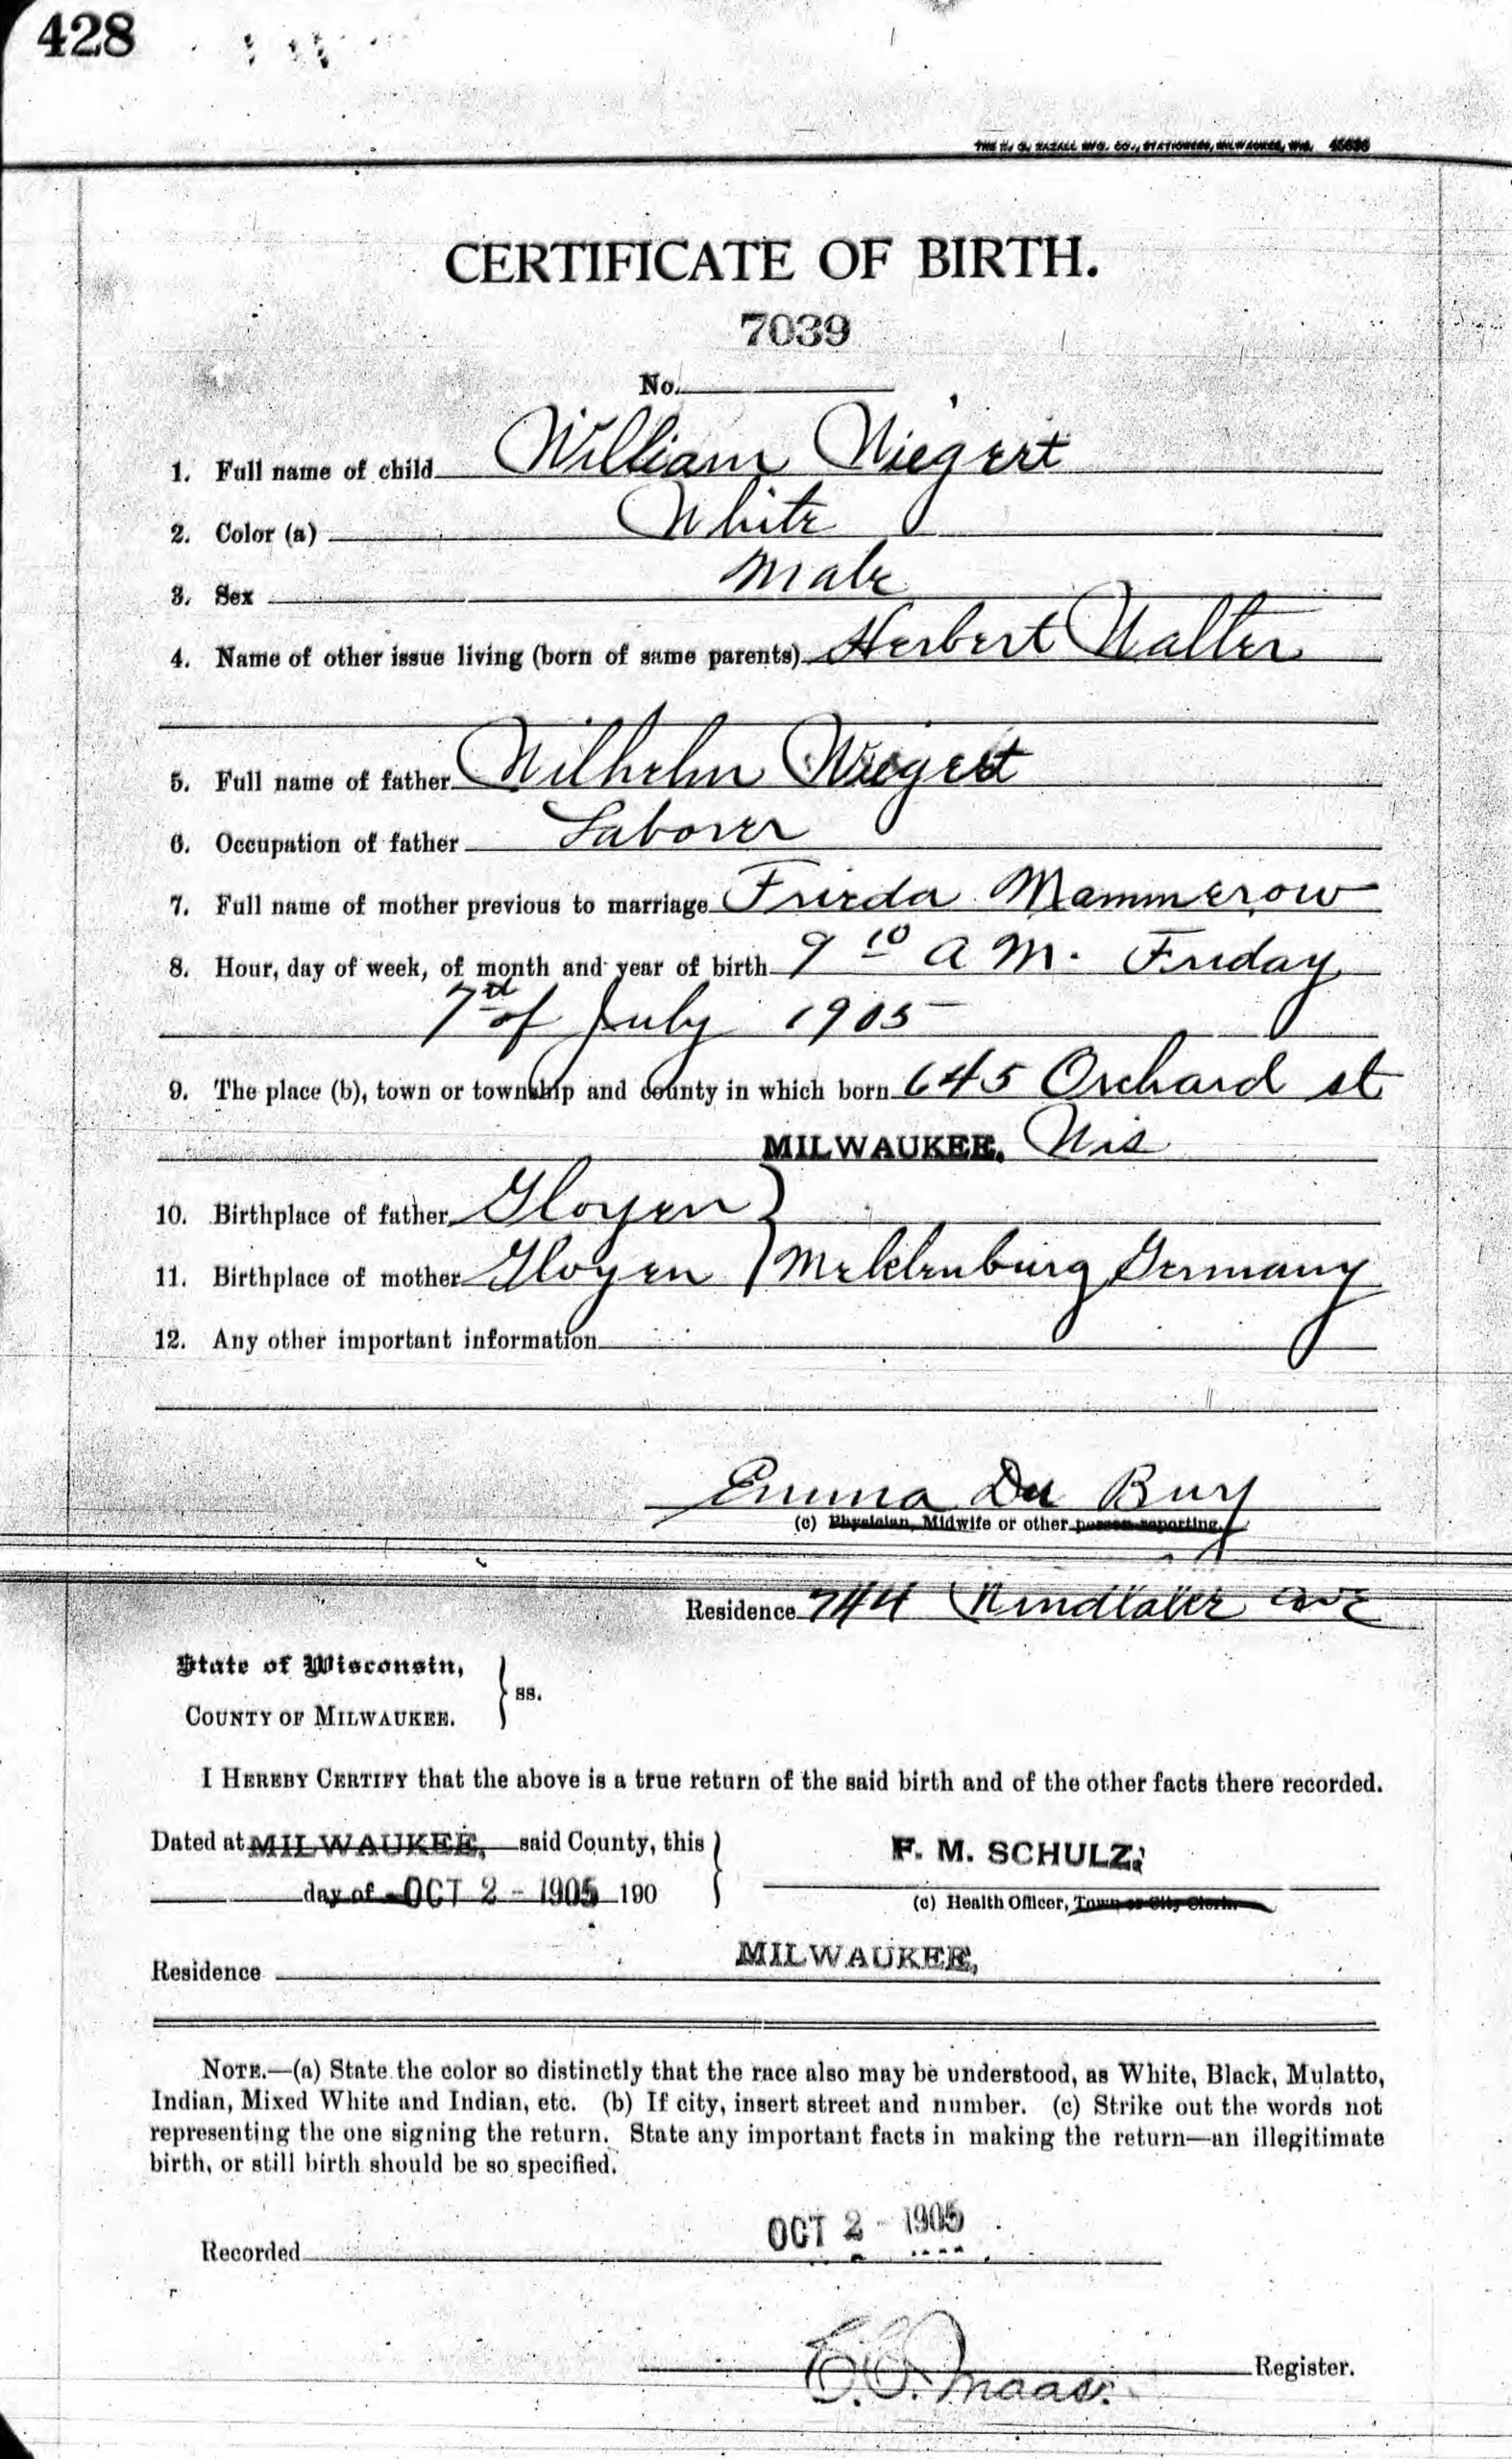 428
THE H. G. RAZALL MFG. CO., STATIONERS, MILWAUKEE, WIS.
CERTIFICATE OF BIRTH.
7039
No.
1. Full name of child William Wiegert
2. Color (a) White
3. Sex Male
4. Name of other issue living (born of same parents) Herbert Walter
5. Full name of father Wilhelm Wiegert
6. Occupation of father Laborer
7. Full name of mother previous to marriage Frieda Mammerow
8. Hour, day of week, of month and year of birth 9 10 A M. Friday
7d of July 1905
9. The place (b), town or township and county in which born 645 Orchard st
MILWAUKEE, Wis
10. Birthplace of father Gloyen }
11. Birthplace of mother Gloyen } Meklenburg Germany
12. Any other important information
Emma Du Buy
(c) Physician, Midwife or other person reporting.
Residence 744 Windlake Ave
State of Wisconsin,
COUNTY OF MILWAUKEE. } ss.
I HEREBY CERTIFY that the above is a true return of the said birth and of the other facts there recorded.
Dated at MILWAUKEE, said County, this } F. M. SCHULZ,
day of OCT 2 - 1905 190 (c) Health Officer, Town or City Clerk.
Residence MILWAUKEE,
NOTE.—(a) State the color so distinctly that the race also may be understood, as White, Black, Mulatto,
Indian, Mixed White and Indian, etc. (b) If city, insert street and number. (c) Strike out the words not
representing the one signing the return. State any important facts in making the return—an illegitimate
birth, or still birth should be so specified.
Recorded OCT 2 - 1905
E. C. Maas. Register.